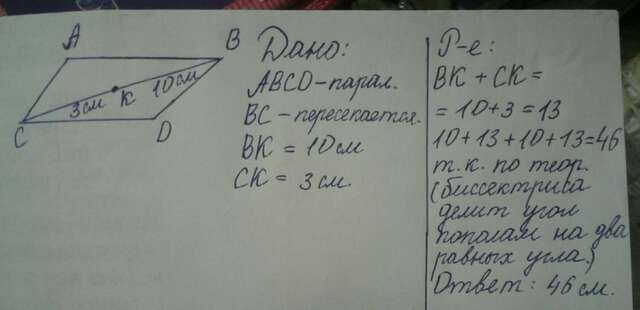 A
B
10см
K
3см
C
D
Дано:
ABCD-парал.
BC - пересекается.
BK = 10см
CK = 3см.
Р-е:
BK + CK =
= 10+3 = 13
10+13+10+13=46
т.к. по теор.
(биссектриса
делит угол
пополам на два
равных угла)
Ответ: 46см.